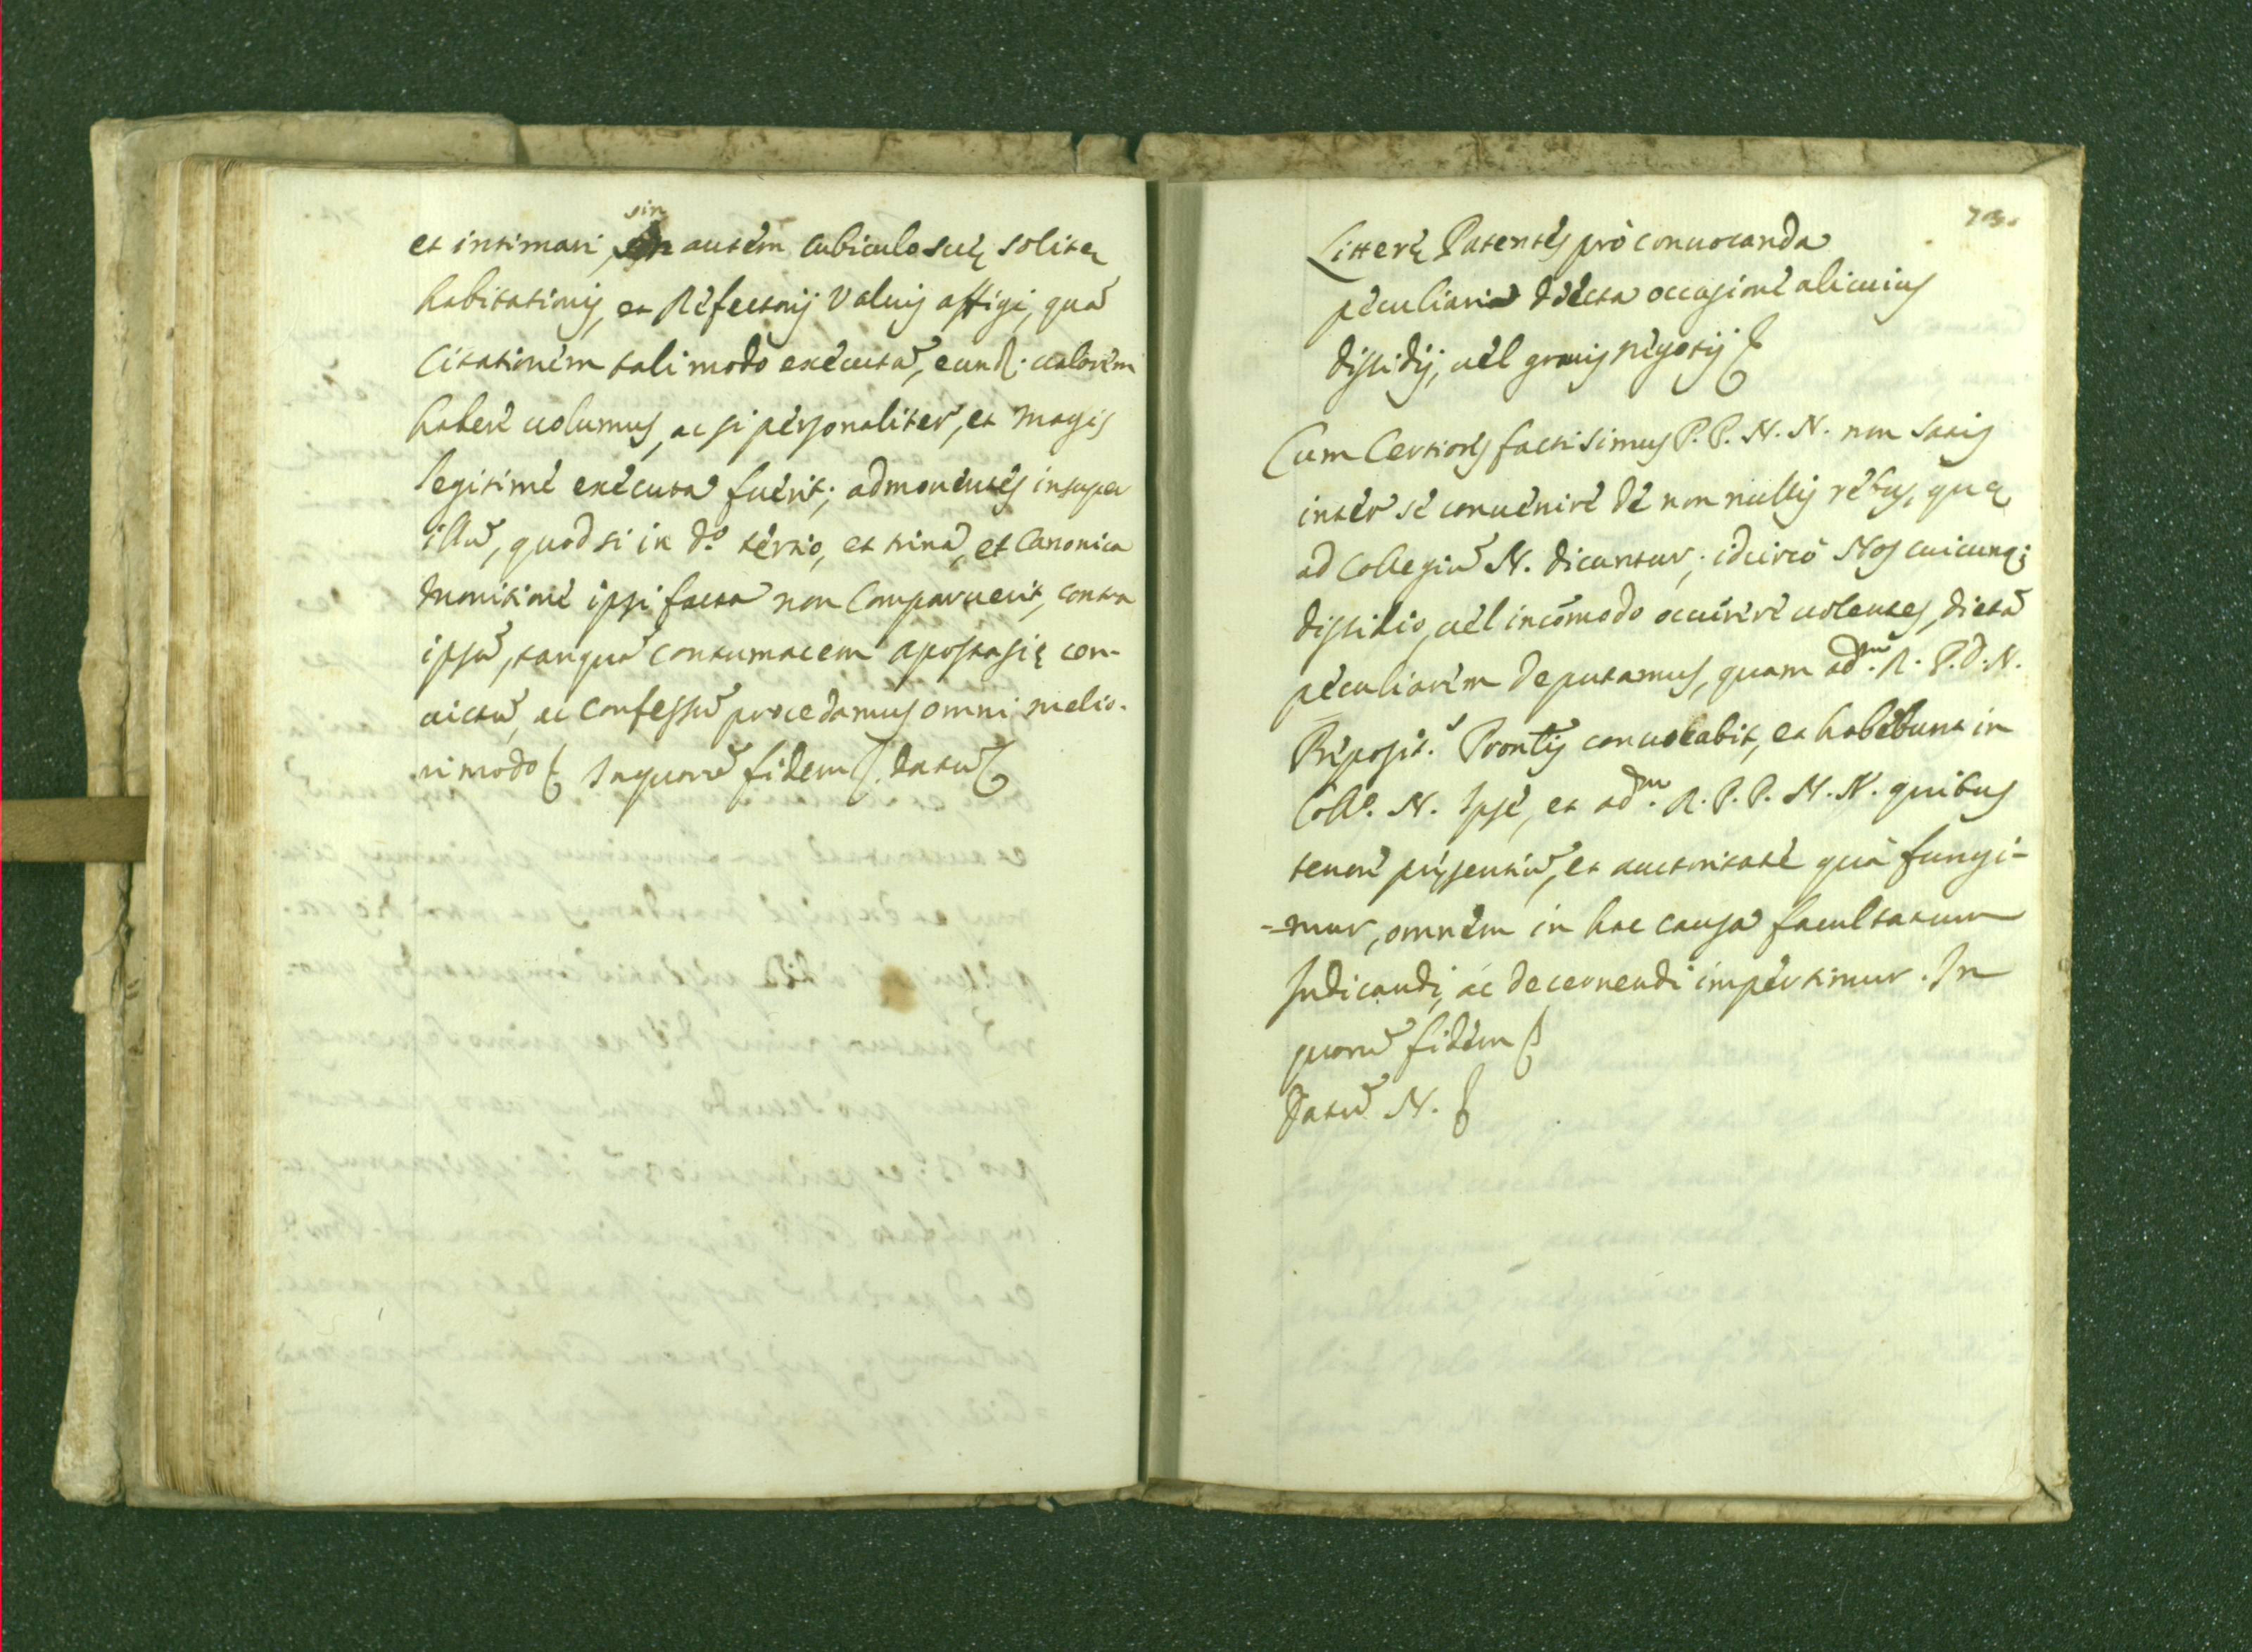 et intimari, sin autem cubiculo suę solitę
habitationis, et Refectorij Valuis affigi, quã
Citationem tali modo executã, eund. ualorem
habere uolumus, ac si personaliter, et magis
legitime executa fuerit; admonentes insuper
illũ, quod si in d.º tertio, et trina, et Canonica
monitione ipsi facta non Comparuerit, contra
ipsũ, tanquã contumacem apostasię con-
uictũ, ac confessũ procedamus omni melio-
ri modo In quorũ fidem datũ
73.
Litterę Patentes prò conuocanda
peculiaria dięcta occasione alicuius
dissidij, uel grauis negotij
Cum Certiores facti simus P. P. N. N. non satis
inter se conuenire de non nullis rebus, quę
ad Collegiũ N. dicuntur; idcircò Nos cuicunq;
dissidio, uel incõmodo occurrere uolentes, dietã
peculiarem deputamus, quam ad.m R. P. D. N.
Pręposit. Prontis conuocabit, et habebunt in
Coll.º N. Ipse, et ad.m R. P. P. N. N. quibus
tenore pręsentiũ, et auctoritate quà fungi-
-mur, omnem in hac causa facultatum
Iudicandi, ac decernendi impertimur. In
quorũ fidem
Datũ N.